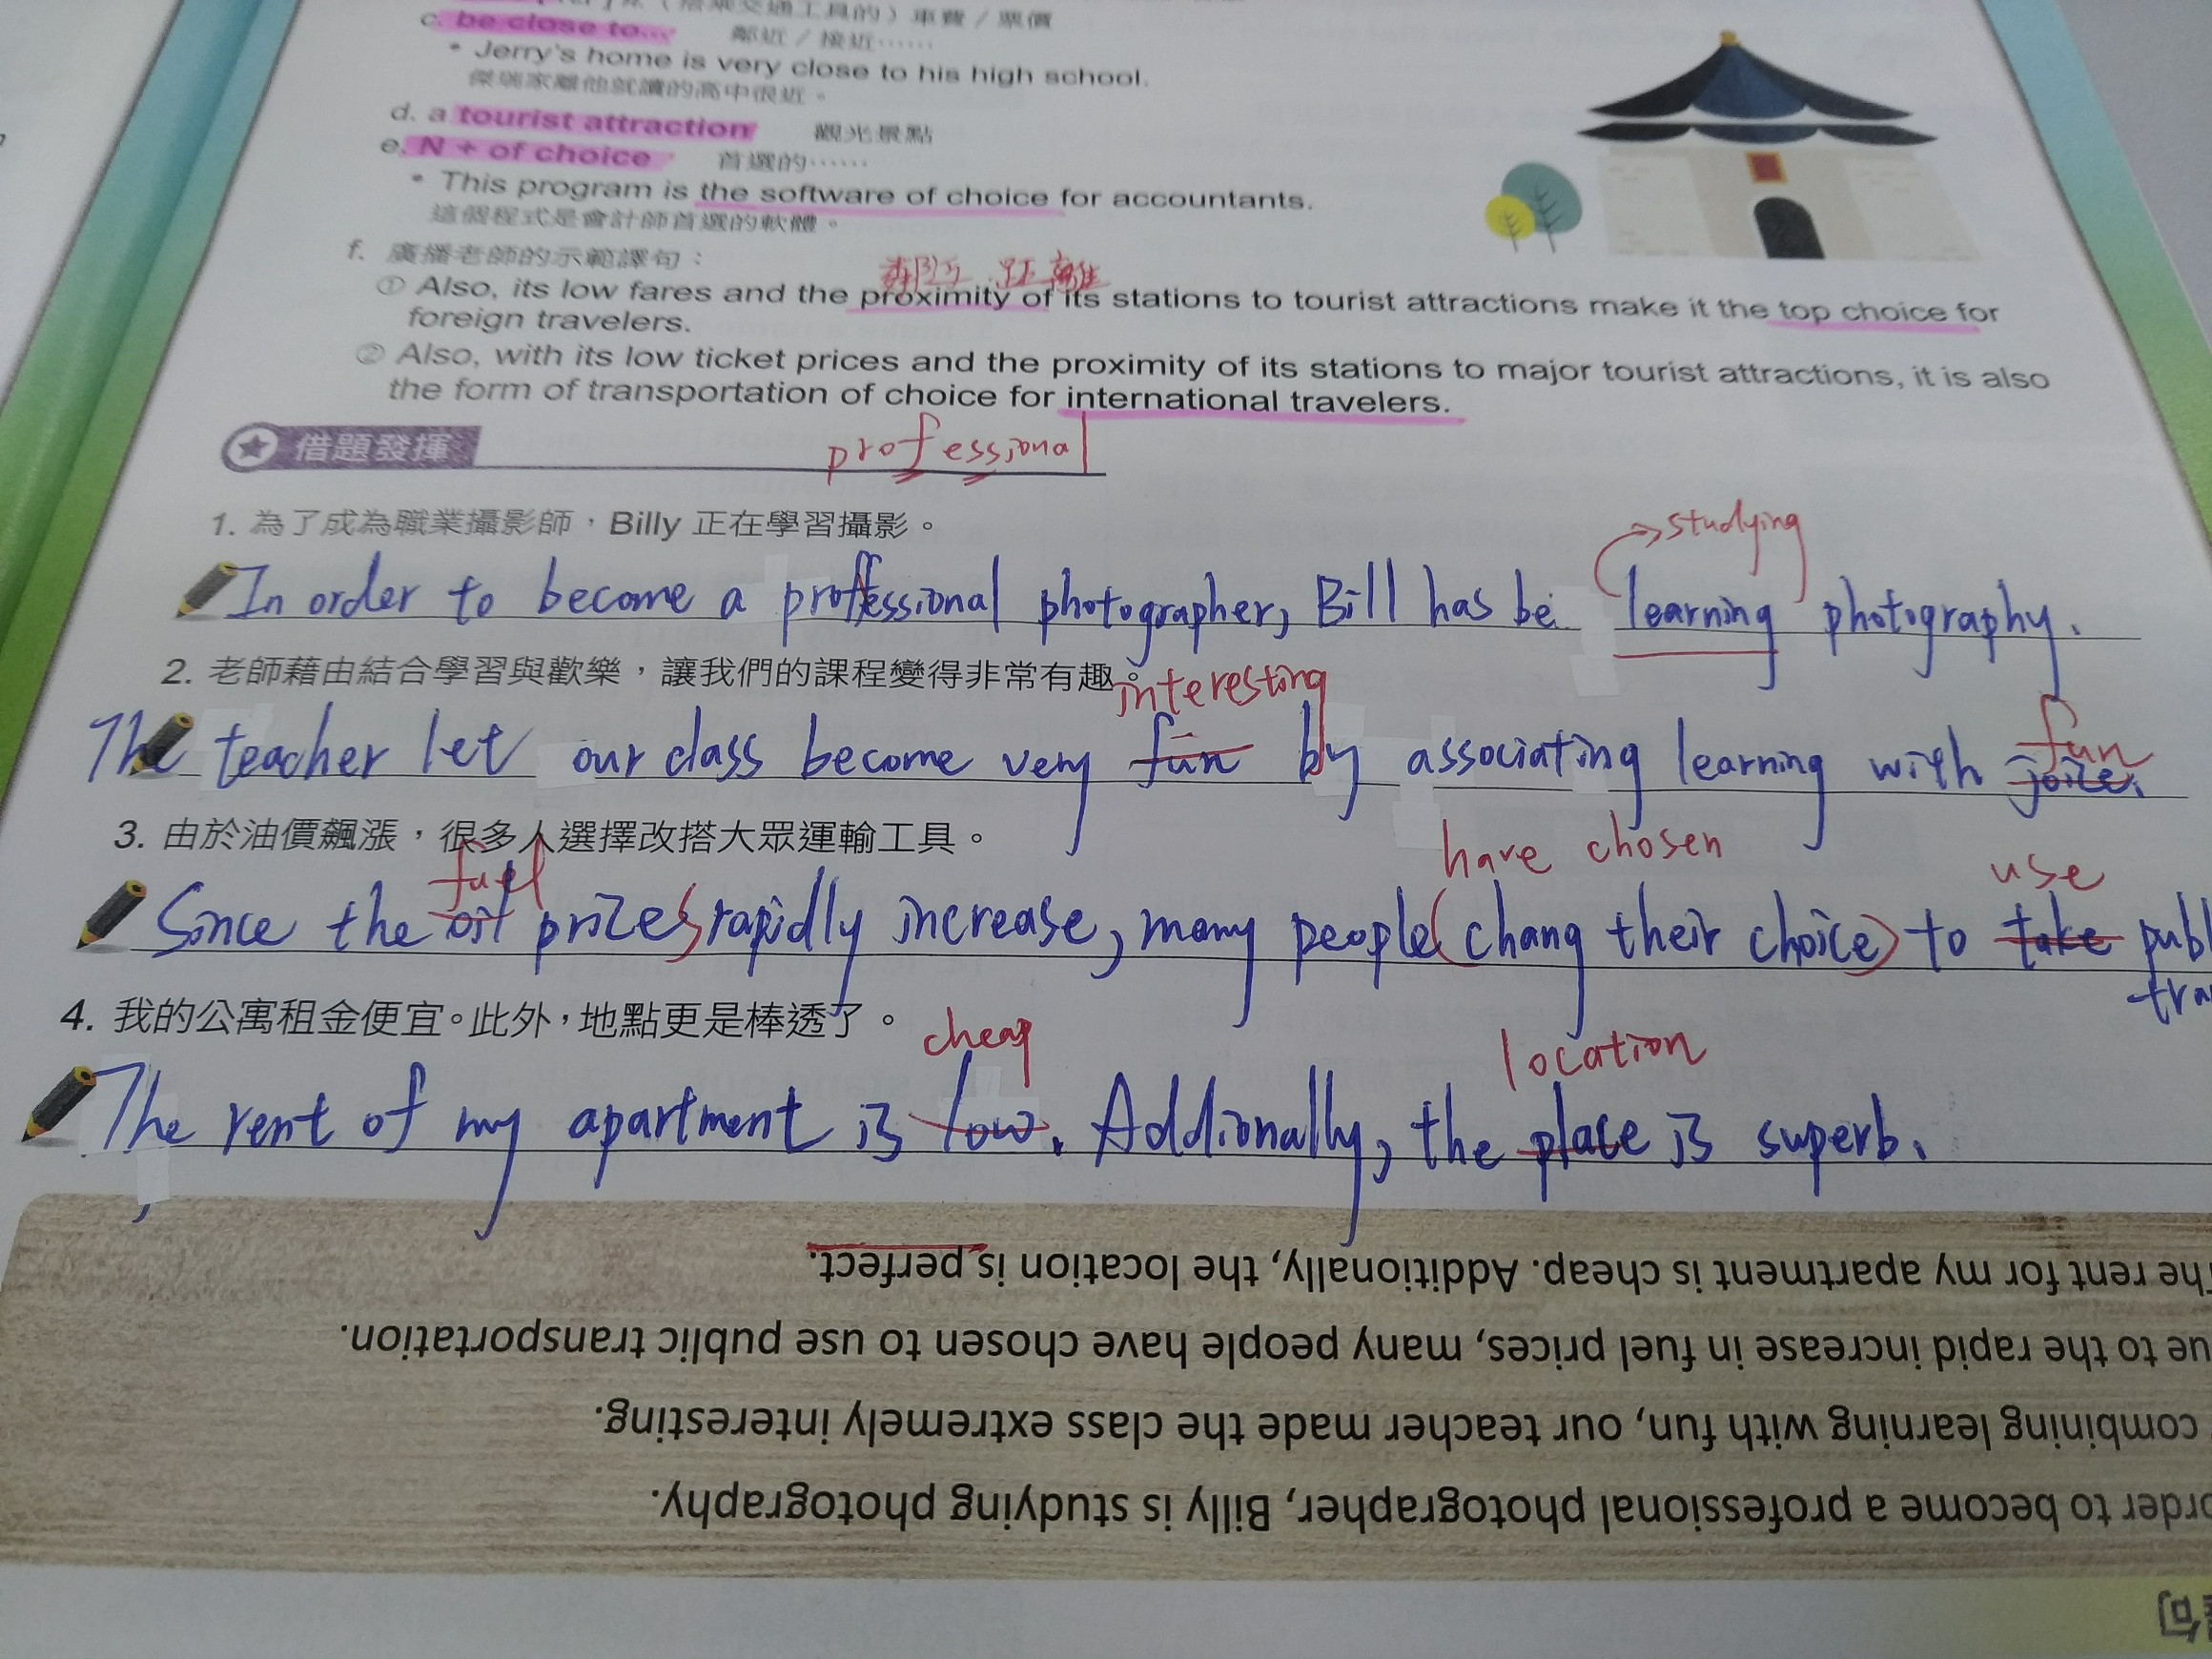 （搭乘交通工具的）車費／票價
c. be close to... 鄰近／接近……
• Jerry's home is very close to his high school.
傑瑞家離他就讀的高中很近。
d. a tourist attraction 觀光景點
e. N + of choice 首選的……
• This program is the software of choice for accountants.
這個程式是會計師首選的軟體。
f. 廣播老師的示範譯句：
距離
① Also, its low fares and the proximity of its stations to tourist attractions make it the top choice for
foreign travelers.
② Also, with its low ticket prices and the proximity of its stations to major tourist attractions, it is also
the form of transportation of choice for international travelers.
借題發揮 professional
1. 為了成為職業攝影師，Billy 正在學習攝影。
studying
In order to become a proffessional photographer, Bill has be learning photography.
2. 老師藉由結合學習與歡樂，讓我們的課程變得非常有趣。
interesting fun
The teacher let our class become very fun by associating learning with joice.
3. 由於油價飆漲，很多人選擇改搭大眾運輸工具。
fuel have chosen use
Since the oil prizes rapidly increase, many people (chang their choice) to take publ
tra
4. 我的公寓租金便宜。此外，地點更是棒透了。
cheap location
The rent of my apartment is low. Addionally, the place is superb.
he rent for my apartment is cheap. Additionally, the location is perfect.
ue to the rapid increase in fuel prices, many people have chosen to use public transportation.
combining learning with fun, our teacher made the class extremely interesting.
order to become a professional photographer, Billy is studying photography.
句